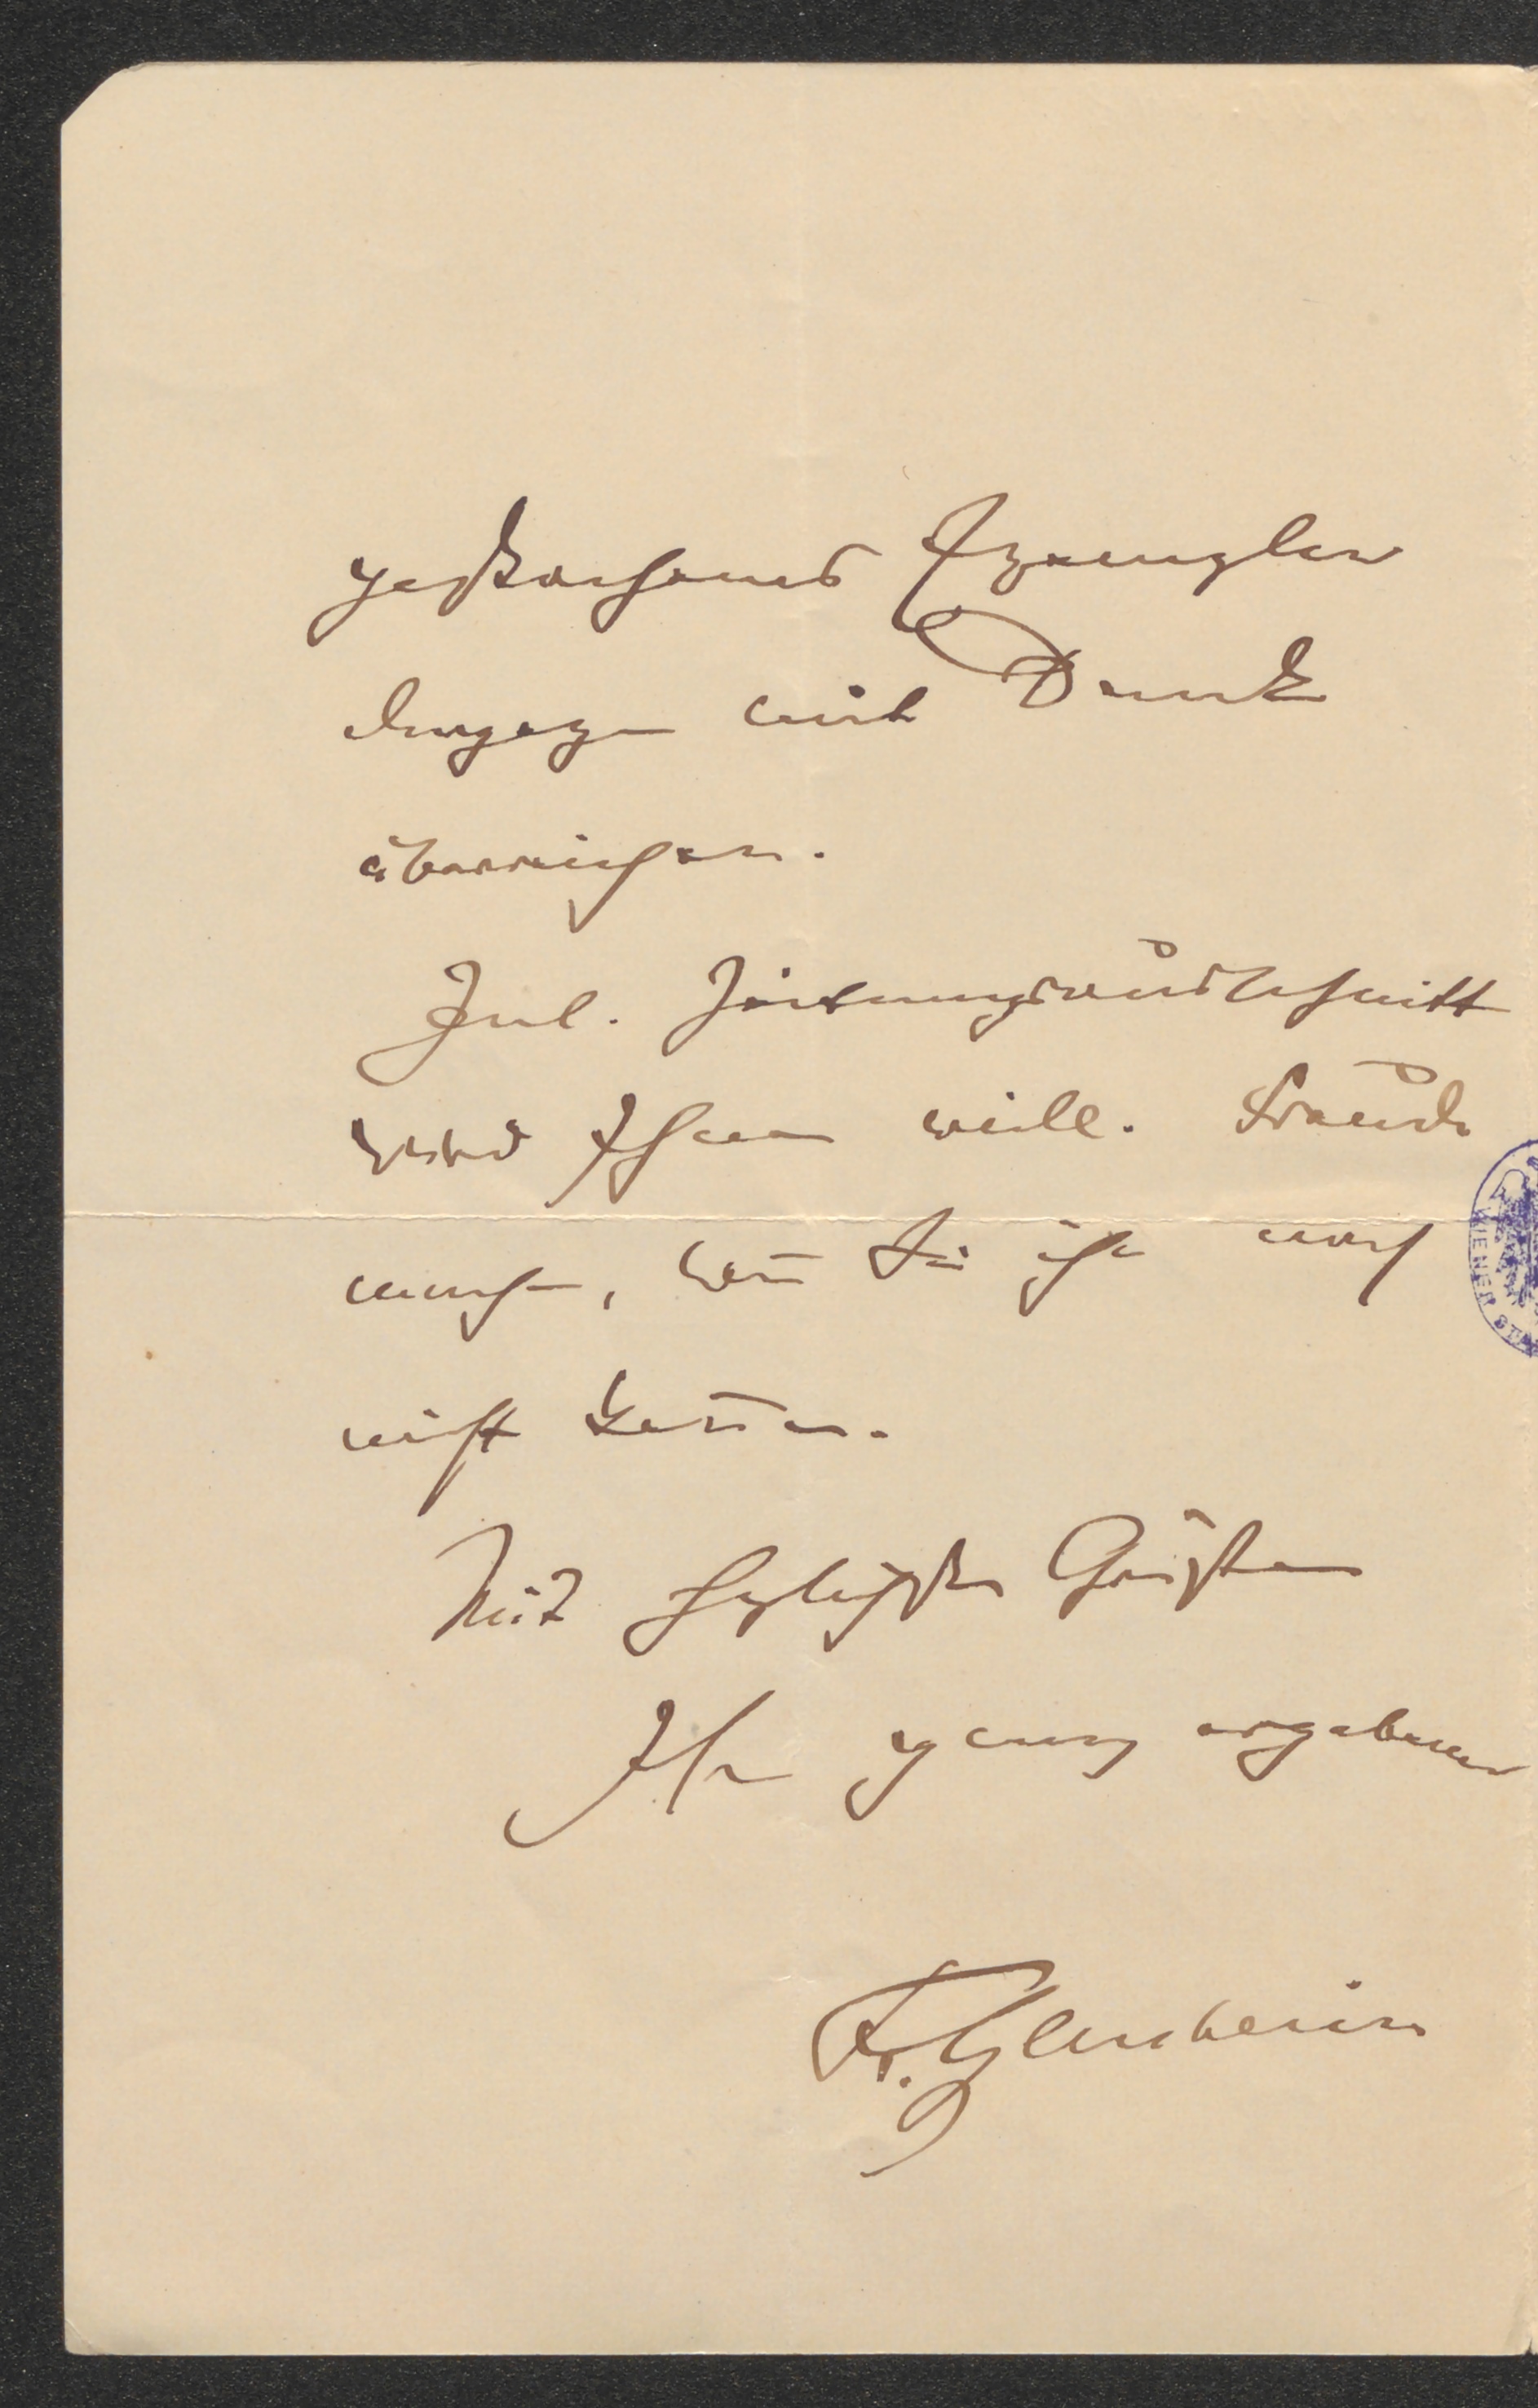 Exemplar
dagegen mit Dank
überreichen.
Inl. Zeitungsausschnitt
wird Ihnen viell. Freude
machen, wen̄ Sie ihn noch
nicht ken̄en.
Mit herzlichsten Grüßen
Ihr ganz ergebener
Fr.
WIENER